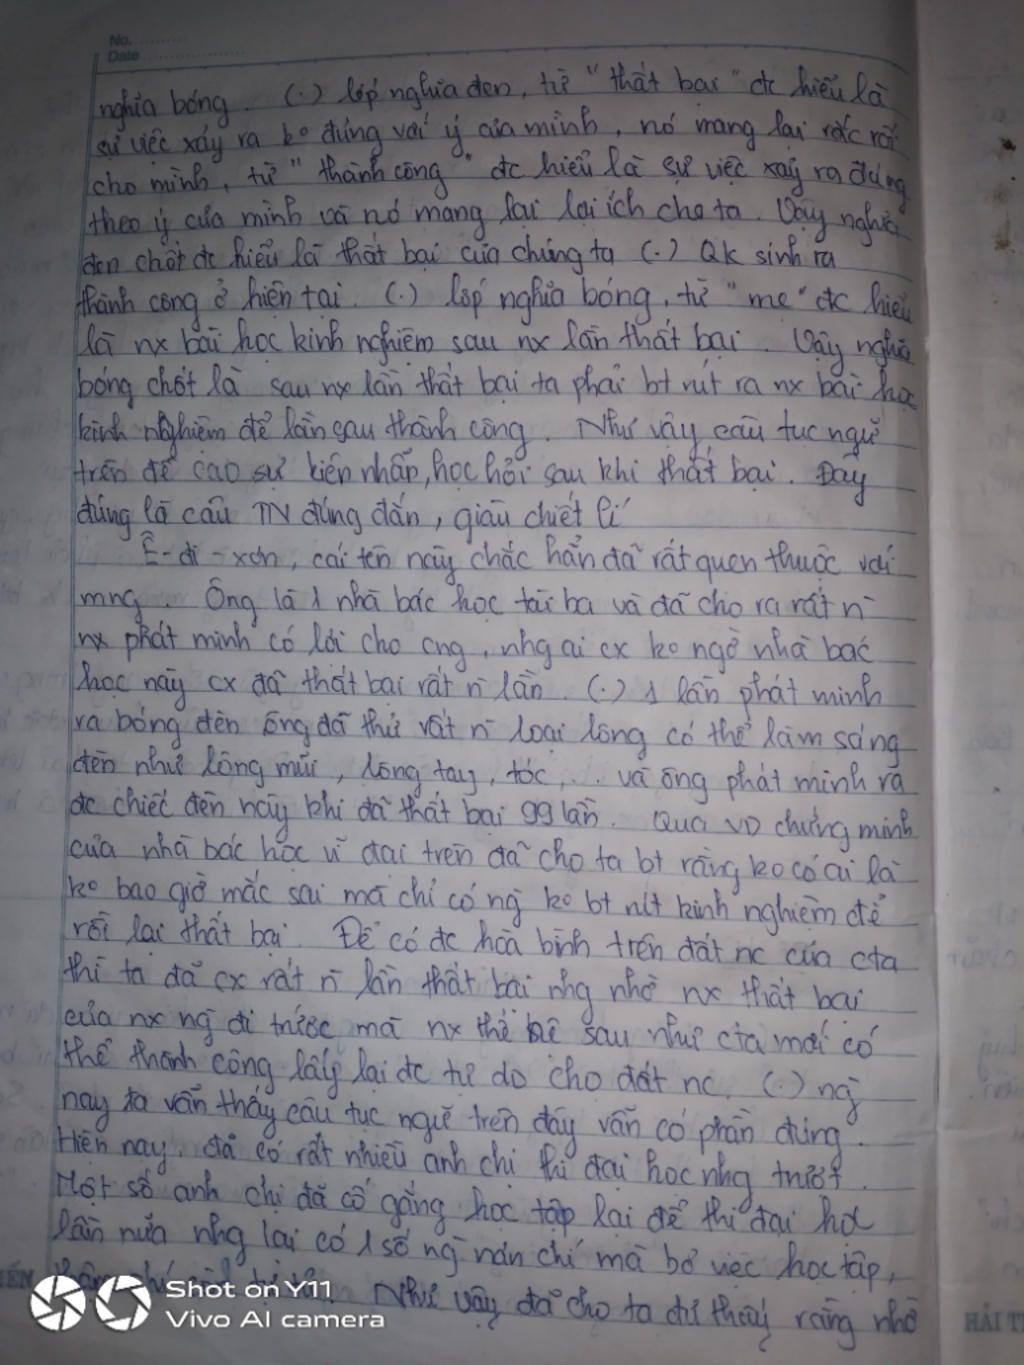 No.
Date
nghĩa bóng. (.) lớp nghĩa đen, từ "thất bại" đc hiểu là
sự việc xảy ra ko đúng với ý của mình, nó mang lại rắc rối
cho mình, từ "thành công" đc hiểu là sự việc xảy ra đúng
theo ý của mình và nó mang lại lợi ích cho ta. Vậy nghĩa
đen chốt đc hiểu là thất bại của chúng ta (.) QK sinh ra
thành công ở hiện tại. (.) lớp nghĩa bóng, từ "mẹ" đc hiểu
là nx bài học kinh nghiệm sau nx lần thất bại. Vậy nghĩa
bóng chốt là sau nx lần thất bại ta phải bt rút ra nx bài học
kinh nghiệm để lần sau thành công. Như vậy câu tục ngữ
trên đề cao sự kiên nhẫn, học hỏi sau khi thất bại. Đây
đúng là câu TN đúng đắn, giàu chiết lí
Ê-đi-xơn, cái tên này chắc hẳn đã rất quen thuộc với
mng. Ông là 1 nhà bác học tài ba và đã cho ra rất n`
nx phát minh có lời cho cng, nhg ai cx ko ngờ nhà bác
học này cx đã thất bại rất n` lần. (.) 1 lần phát minh
ra bóng đèn ông đã thử rất n` loại lông có thể làm sáng
đèn như lông mũi, lông tay, tóc,... và ông phát minh ra
đc chiếc đèn này khi đã thất bại 99 lần. Qua VD chứng minh
của nhà bác học vĩ đại trên đã cho ta bt rằng ko có ai là
ko bao giờ mắc sai mà chỉ có ng` ko bt rút kinh nghiệm để
rồi lại thất bại. Để có đc hòa bình trên đất nc của cta
thì ta đã cx rất n` lần thất bại nhg nhờ nx thất bại
của nx ng` đi trước mà nx thế hệ sau như cta mới có
thể thành công lấy lại đc tự do cho đất nc. (.) ng`
nay ta vẫn thấy câu tục ngữ trên đây vẫn có phần đúng.
Hiện nay, đã có rất nhiều anh chị thi đại học nhg trượt.
Một số anh chị đã cố gắng học tập lại để thi đại học
lần nữa nhg lại có 1 số ng` nản chí mà bỏ việc học tập,
Như vậy đã cho ta thấy rằng nhờ
Shot on Y11
Vivo AI camera
HẢI T